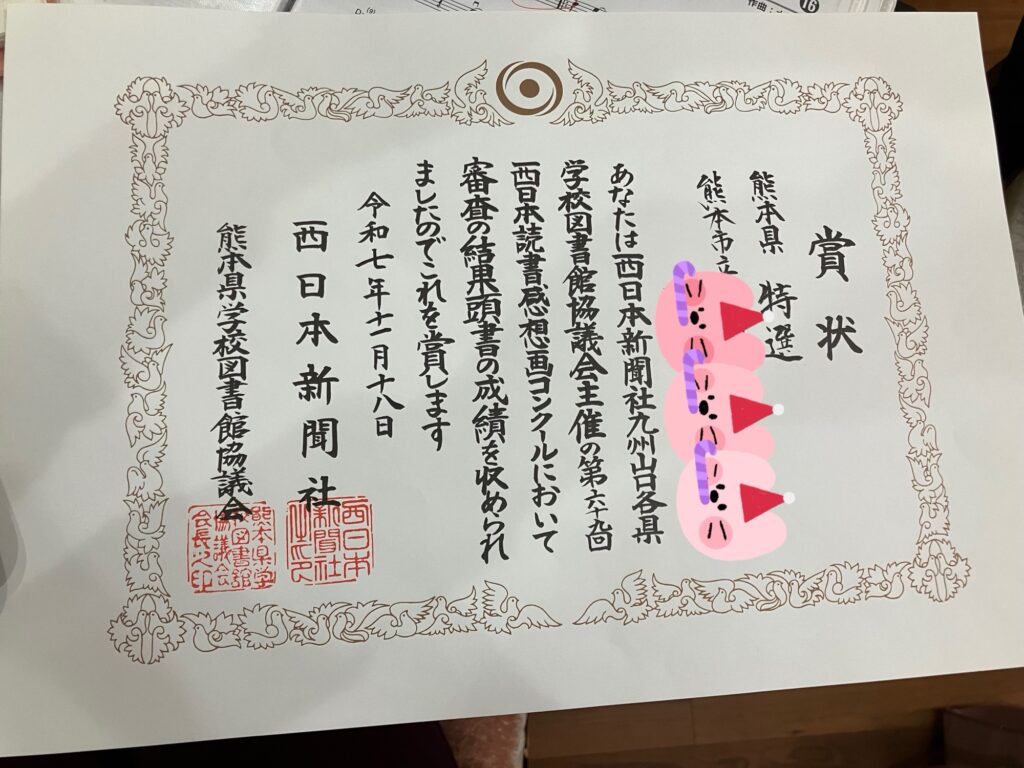 賞状
熊本県 特選
熊本市立
あなたは西日本新聞社九州山口各県
学校図書館協議会主催の第六十九回
西日本読書感想画コンクールにおいて
審査の結果頭書の成績を収められ
ましたのでこれを賞します
令和七年十一月十八日
西日本新聞社
熊本県学校図書館協議会
西日本
新聞社
之印
熊本県学
校図書館
協議会
会長之印
作曲:
16